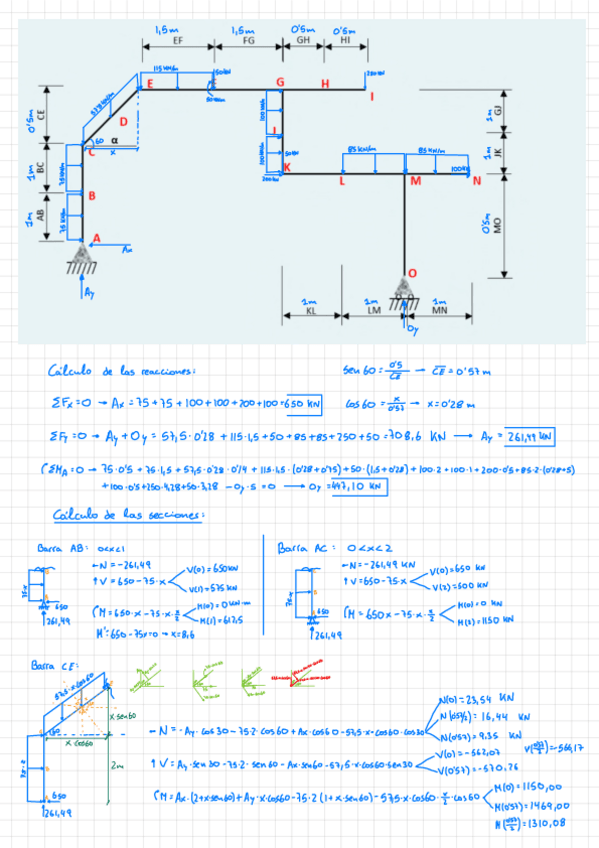 1,5m 1,5m 0'5m 0'5m
EF FG GH HI
115 kN/m
E G H I
CE 0'5m
D
60 α
C x
BC 1m
B
AB 1m
A
Ax
Ay
J
K
GJ 1m
JK 1m
85 kN/m 85 kN/m
L M N
MO 0'5m
O
1m 1m 1m
KL LM MN
Oy
Cálculo de las reacciones:
sen 60 = 0'5/CE → CE = 0'57 m
ΣFx=0 → Ax = 75 + 75 + 100 + 100 + 200 + 100 = 650 KN
cos 60 = x/0'57 → x = 0'28 m
ΣFy=0 → Ay + Oy = 57,5·0'28 + 115·1,5 + 50 + 85 + 85 + 250 + 50 = 708,6 KN → Ay = 261,49 KN
ΣMA=0 → 75·0'5 + 75·1,5 + 57,5·0'28·0'14 + 115·1,5·(0'28+0'75) + 50·(1,5+0'28) + 100·2 + 100·1 + 200·0'5 + 85·2·(0'28+5)
+ 100·0'5 + 250·4,28 + 50·3,28 - Oy·5 = 0 → Oy = 447,10 KN
Cálculo de las secciones:
Barra AB: 0<x<1
N = -261,49
V = 650 - 75·x
V(0) = 650 KN
V(1) = 575 KN
M = 650·x - 75·x·x/2
M(0) = 0 KN·m
M(1) = 612,5
M' = 650 - 75x = 0 → x = 8,6
650
261,49
Barra AC: 0<x<2
N = -261,49 KN
V = 650 - 75·x
V(0) = 650 KN
V(2) = 500 KN
M = 650x - 75·x·x/2
M(0) = 0 KN
M(2) = 1150 KN
650
261,49
Barra CE:
57,5·x·cos60
x·sen60
x·cos60
2m
650
261,49
N = -Ay·cos 30 - 75·2·cos 60 + Ax·cos 60 - 57,5·x·cos 60·cos 30
N(0) = 23,54 KN
N(0'57/2) = 16,44 KN
N(0'57) = 9,35 KN
V = Ay·sen 30 - 75·2·sen 60 - Ax·sen 60 - 57,5·x·cos 60·sen 30
V(0) = -562,07
V(0'57) = -570,26
V(0'57/2) = -566,17
M = Ax·(2+x·sen60) + Ay·x·cos60 - 75·2(1+x·sen60) - 57,5·x·cos60·x/2·cos60
M(0) = 1150,00
M(0'57) = 1469,00
M(0'57/2) = 1310,08